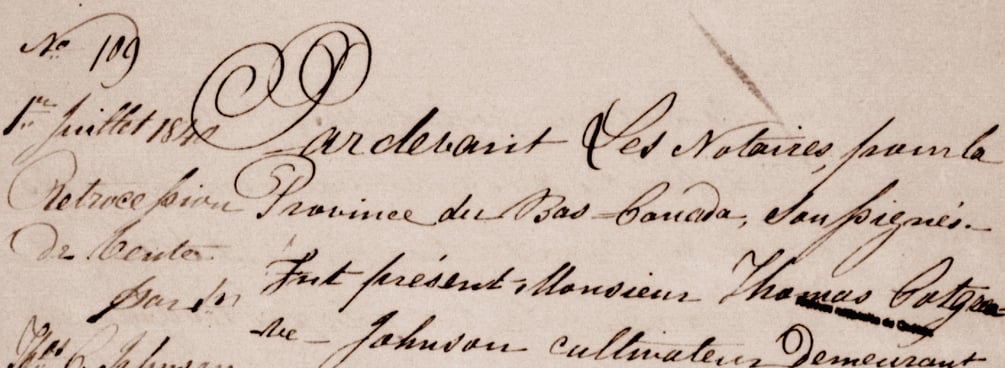 No 109
1er Juillet 1840
Retrocession
De Vente
par Mr
Thos C. Johnson
Pardevant Les Notaires, pour la
Province du Bas-Canada, Soussignés.
Fut présent Monsieur Thomas Cotgra-
ve Johnson cultivateur Demeurant